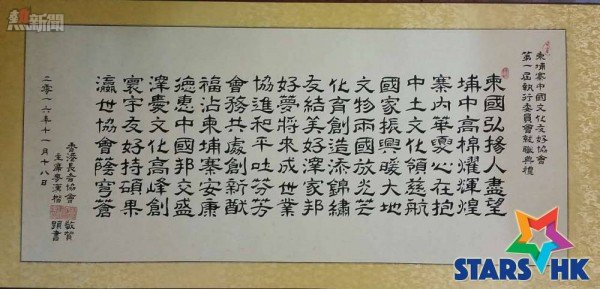 熱新聞
柬埔寨中國文化友好協會
第一屆執行委員會就職典禮
柬國弘揚人盡望
埔中高棉耀輝煌
寨內華裔心在抱
中土文化領慈航
國家振興暖大地
文物兩國放光芒
化育創造添錦繡
友結美好深家邦
好夢將來成世業
協進和平吐芬芳
會務共處創新猷
福沾柬埔寨安康
德惠中國邦交盛
深慶文化高峰創
寰宇友好持碩果
瀛世協會蔭穹蒼
香港長者協會 敬贊
主席 題書
二零一六年十一月十八日
STARS HK